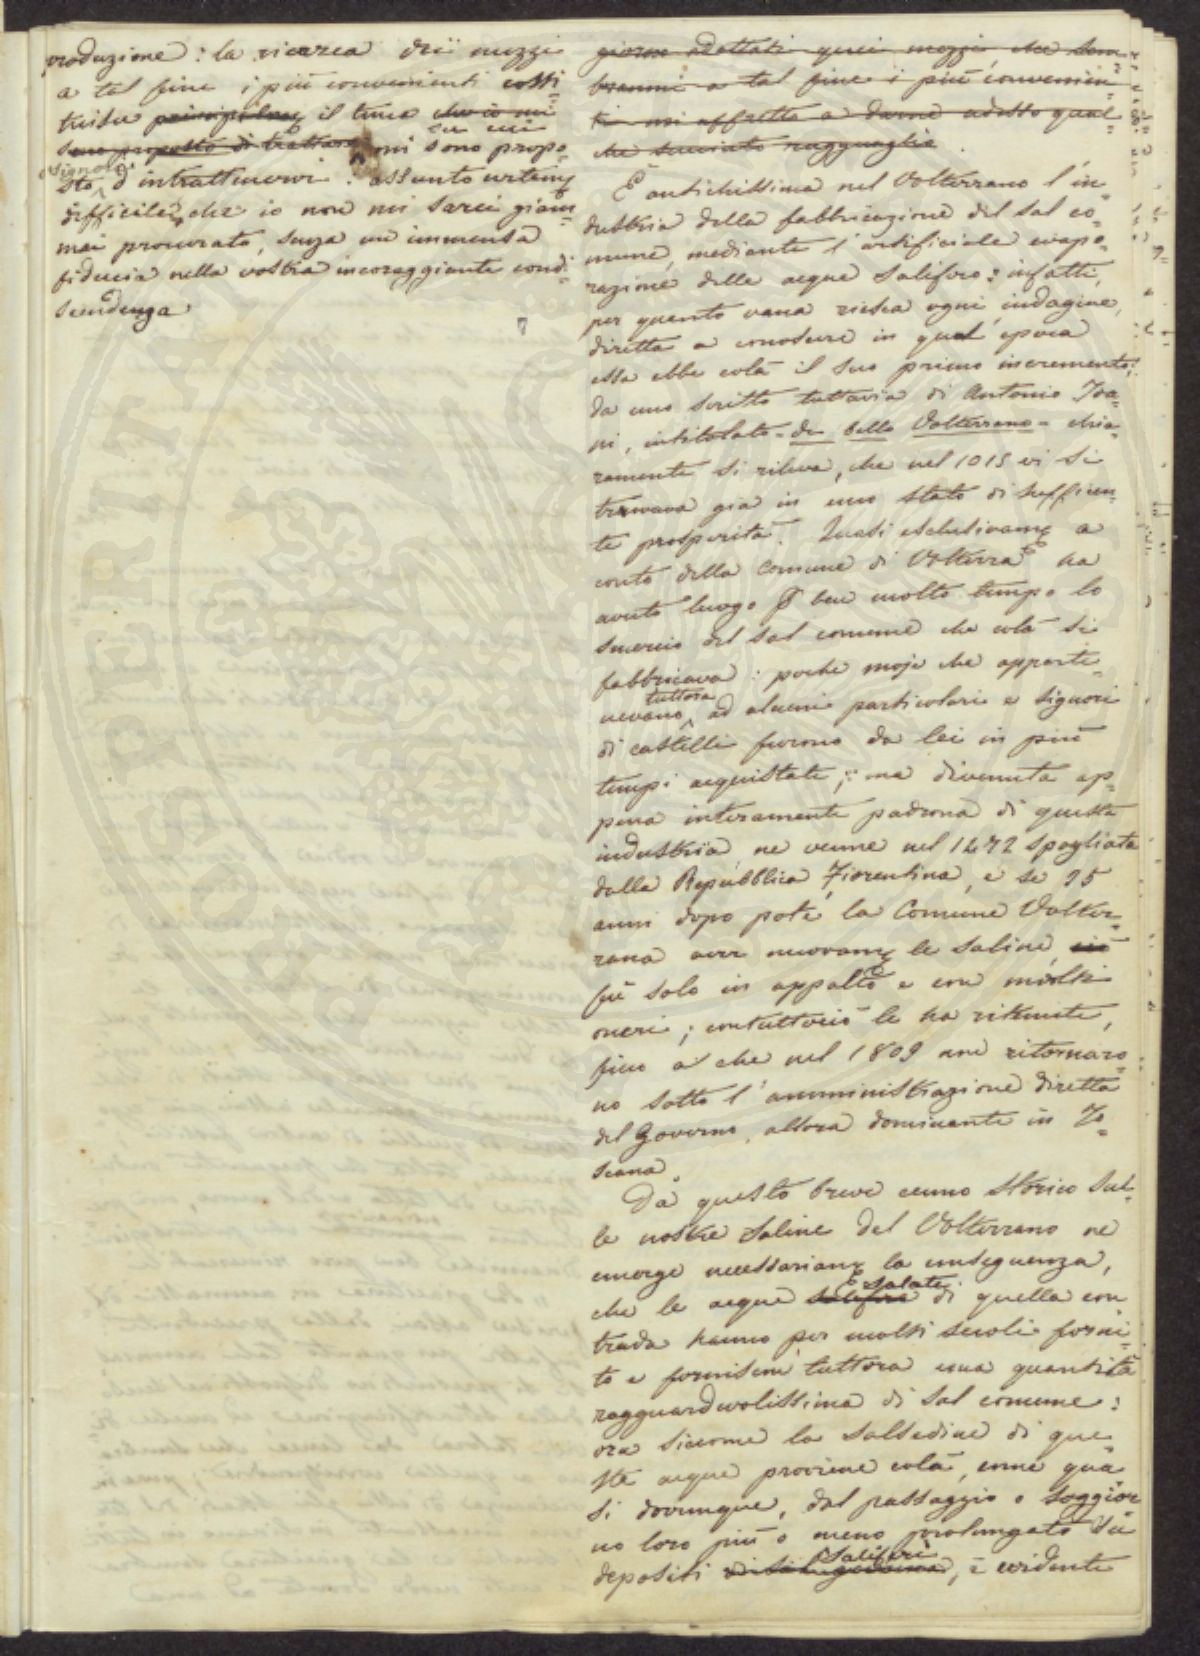 produzione: la ricerca dei mezzi
a tal fine i più convenienti costi=
tuisce principalmẽ il tema che io mi
sono proposto di trattare su cui
mi sono propo=
sto, Signori,
d'intrattenervi: assunto certamẽ
difficile, che io non mi sarei giam=
mai procurato, senza un immensa
fiducia nella vostra incoraggiante condi=
scendenza.
giorno adottati quei mezzi, che sem=
branmi a tal fine i più convenien=
ti mi affretto a darne adesso qual=
che succinto ragguaglio.
È antichissima nel Volterrano l'in=
dustria della fabbricazione del sal co=
mune, mediante l'artificiale evapo=
razione delle acque salifere: infatti,
per quanto vana riesca ogni indagine,
diretta a conoscere in qual epoca
essa ebbe colà il suo primo incremento,
da uno scritto tuttavia di Antonio Iva=
ni, intitolato - de bello Volterrano - chia=
ramente si rileva, che nel 1015 vi si
trovava già in uno stato di sufficien=
te prosperità. Quasi esclusivamẽ a
conto della Comune di Volterra ha
avuto luogo p ben molto tempo lo
smercio del sal comune che colà si
fabbricava: poche moje che apparte=
nevano tuttora ad alcuni particolari e signori
di castelli furono da lei in più
tempi acquistate; ma divenuta ap=
pena interamente padrona di questa
industria, ne venne nel 1472 spogliata
dalla Repubblica Fiorentina, e se 95
anni dopo potè la Comune Volter=
rana aver nuovamẽ le saline, ciò
fù solo in appalto e con molti
oneri; contuttociò le ha ritenute,
fino a che nel 1809 non ritornaro=
no sotto l'amministrazione diretta
del Governo, allora dominante in To=
scana.
Da questo breve cenno storico sul=
le nostre Saline del Volterrano ne
emerge necessariamẽ la conseguenza,
che le acque salifere salate di quella con
trada hanno per molti secoli forni=
to e forniscon tuttora una quantità
ragguardevolissima di sal comune:
ora siccome la salsedine di que=
ste acque proviene colà, come qua=
si dovunque, dal passaggio o soggior=
no loro più o meno prolungato su
depositi saliferi, è evidente